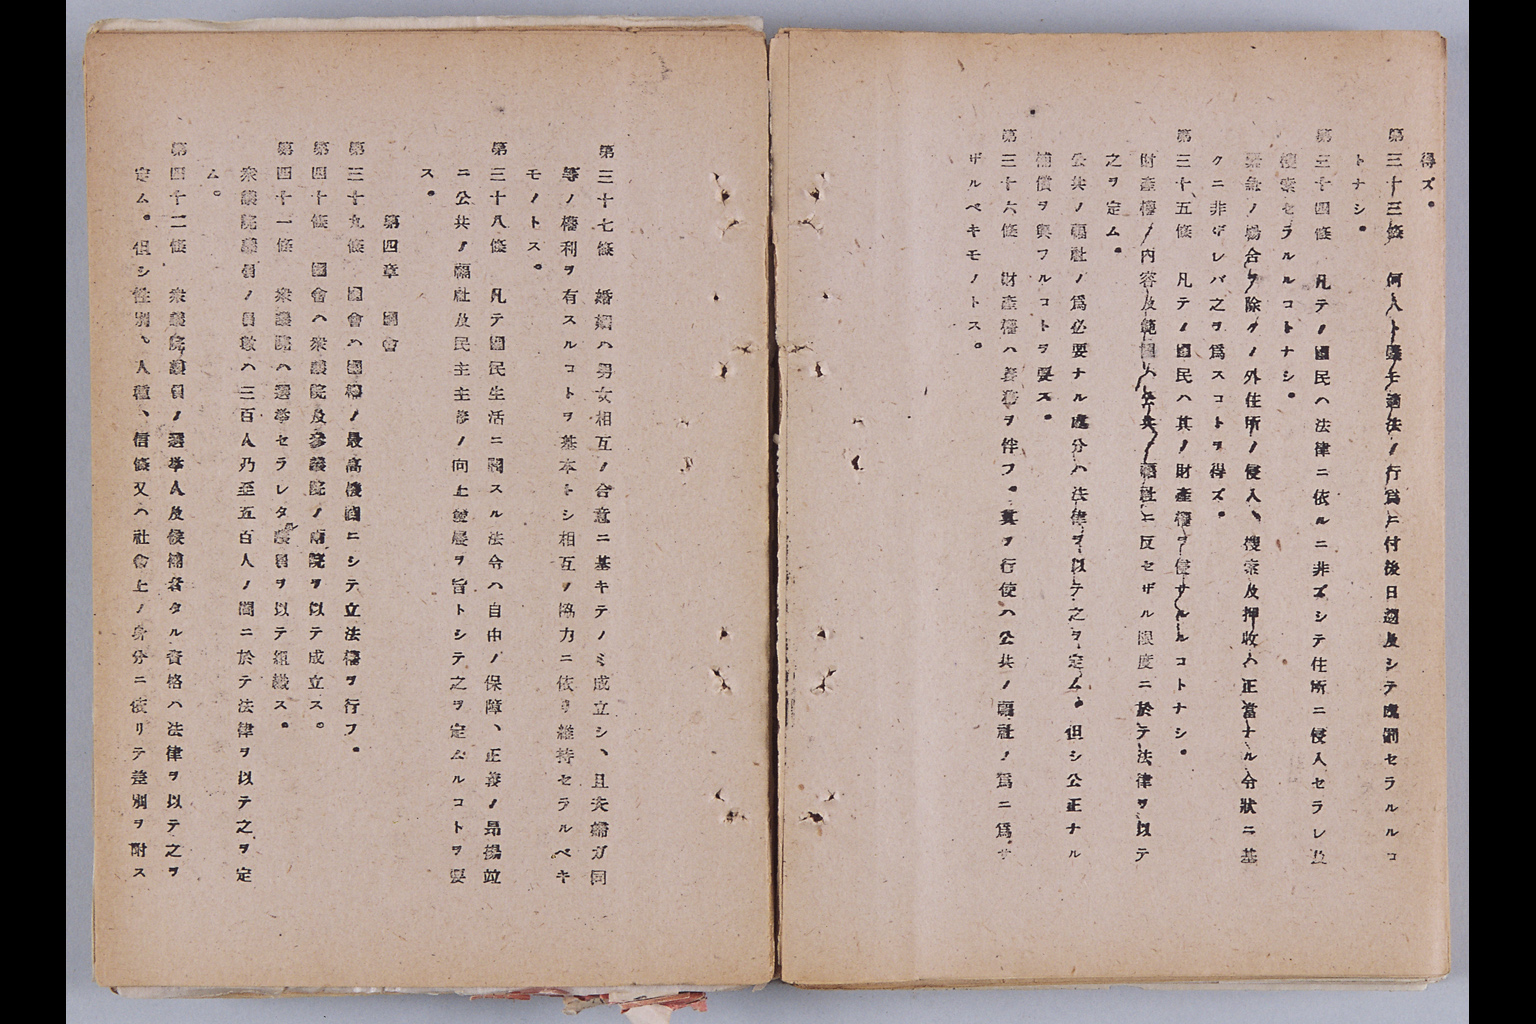 得ズ。
第三十三條　何人ト雖モ適法ノ行爲ニ付後日遡及シテ處罰セラルルコ
トナシ。
第三十四條　凡テノ國民ハ法律ニ依ルニ非ズシテ住所ニ侵入セラレ及
搜索セラルルコトナシ。
緊急ノ場合ヲ除クノ外住所ノ侵入、搜索及押收ハ正當ナル令狀ニ基
クニ非ザレバ之ヲ爲スコトヲ得ズ。
第三十五條　凡テノ國民ハ其ノ財產權ヲ侵サルルコトナシ。
財產權ノ內容及範圍ハ公共ノ福祉ニ反セザル限度ニ於テ法律ヲ以テ
之ヲ定ム。
公共ノ福祉ノ爲必要ナル處分ハ法律ヲ以テ之ヲ定ム。但シ公正ナル
補償ヲ與フルコトヲ要ス。
第三十六條　財產權ハ義務ヲ伴フ。其ノ行使ハ公共ノ福祉ノ爲ニ爲サ
ザルベキモノトス。
第三十七條　婚姻ハ男女相互ノ合意ニ基キテノミ成立シ、且夫婦ガ同
等ノ權利ヲ有スルコトヲ基本トシ相互ノ協力ニ依リ維持セラルベキ
モノトス。
第三十八條　凡テ國民生活ニ關スル法令ハ自由ノ保障、正義ノ昂揚竝
ニ公共ノ福祉及民主主義ノ向上發展ヲ旨トシテ之ヲ定ムルコトヲ要
ス。
第四章　國會
第三十九條　國會ハ國權ノ最高機關ニシテ立法權ヲ行フ。
第四十條　國會ハ衆議院及參議院ノ兩院ヲ以テ成立ス。
第四十一條　衆議院ハ選擧セラレタ議員ヲ以テ組織ス。
衆議院議員ノ員數ハ三百人乃至五百人ノ間ニ於テ法律ヲ以テ之ヲ定
ム。
第四十二條　衆議院議員ノ選擧人及候補者タル資格ハ法律ヲ以テ之ヲ
定ム。但シ性別、人種、信條又ハ社會上ノ身分ニ依リテ差別ヲ附ス